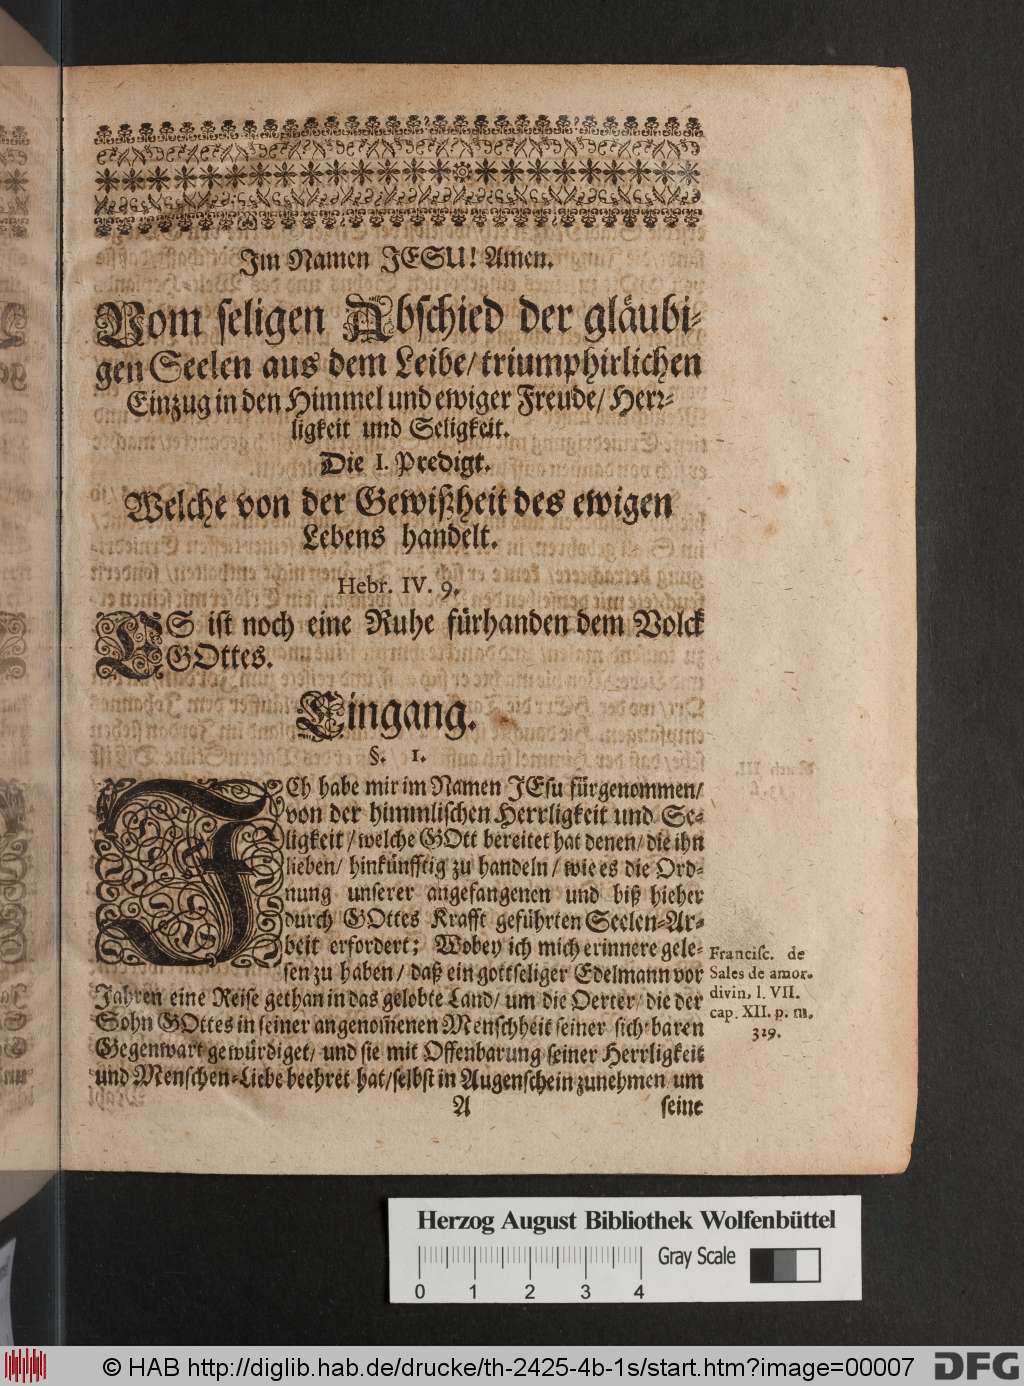 Im Namen JESU! Amen.
Vom seligen Abschied der gläubi-
gen Seelen aus dem Leibe/ triumphirlichen
Einzug in den Himmel und ewiger Freude/ Herr-
ligkeit und Seligkeit.
Die I. Predigt.
Welche von der Gewißheit des ewigen
Lebens handelt.
Hebr. IV. 9.
ES ist noch eine Ruhe fürhanden dem Volck
GOttes.
Eingang.
§. 1.
ICh habe mir im Namen JEsu fürgenommen/
von der himmlischen Herrligkeit und Se-
ligkeit/ welche GOtt bereitet hat denen/ die ihn
lieben/ hinkünfftig zu handeln/ wie es die Ord-
nung unserer angefangenen und biß hieher
durch GOttes Krafft geführten Seelen-Ar-
beit erfordert; Wobey ich mich erinnere gele-
sen zu haben/ daß ein gottseliger Edelmann vor
Jahren eine Reise gethan in das gelobte Land/ um die Oerter/ die der
Sohn GOttes in seiner angenom̅enen Menschheit seiner sichtbaren
Gegenwart gewürdiget/ und sie mit Offenbarung seiner Herrligkeit
und Menschen-Liebe beehret hat/ selbst in Augenschein zunehmen um
A seine
Francisc. de
Sales de amor.
divin. l. VII.
cap. XII. p. m.
329.
Herzog August Bibliothek Wolfenbüttel
Gray Scale
0 1 2 3 4
© HAB http://diglib.hab.de/drucke/th-2425-4b-1s/start.htm?image=00007
DFG